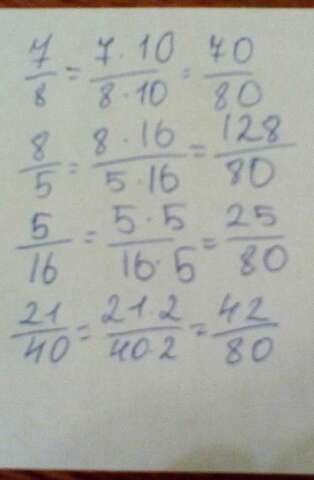 7/8 = 7·10/8·10 = 70/80
8/5 = 8·16/5·16 = 128/80
5/16 = 5·5/16·5 = 25/80
21/40 = 21·2/40·2 = 42/80